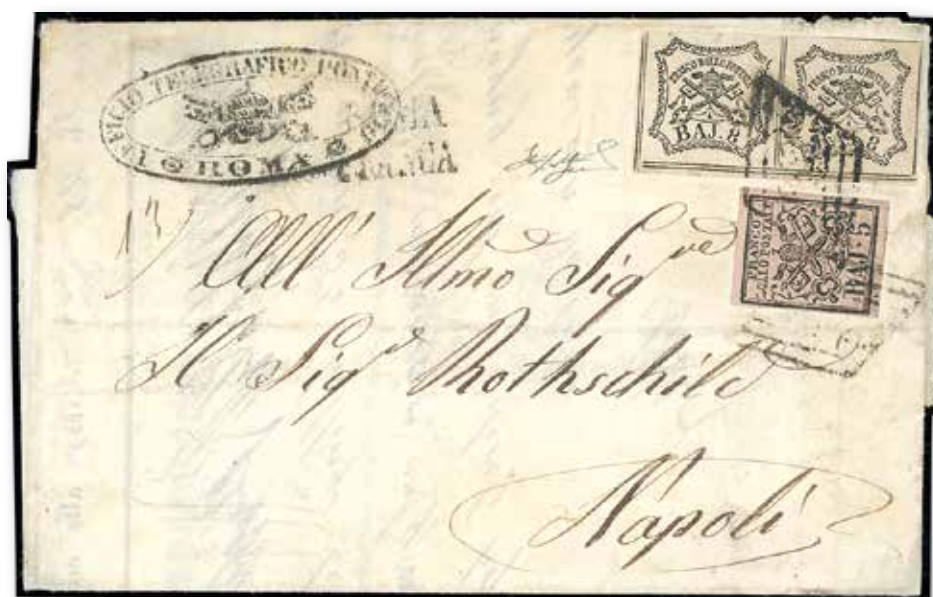 UFFICIO TELEGRAFICO PONTIFICIO
ROMA
FRANCO BOLLO POSTALE
BAJ. 8
FRANCO BOLLO POSTALE
8
FRANCO
BOLLO POSTALE
BAJ. 5
All' Illmo Sigre
Il Sigr Rothschild
Napoli